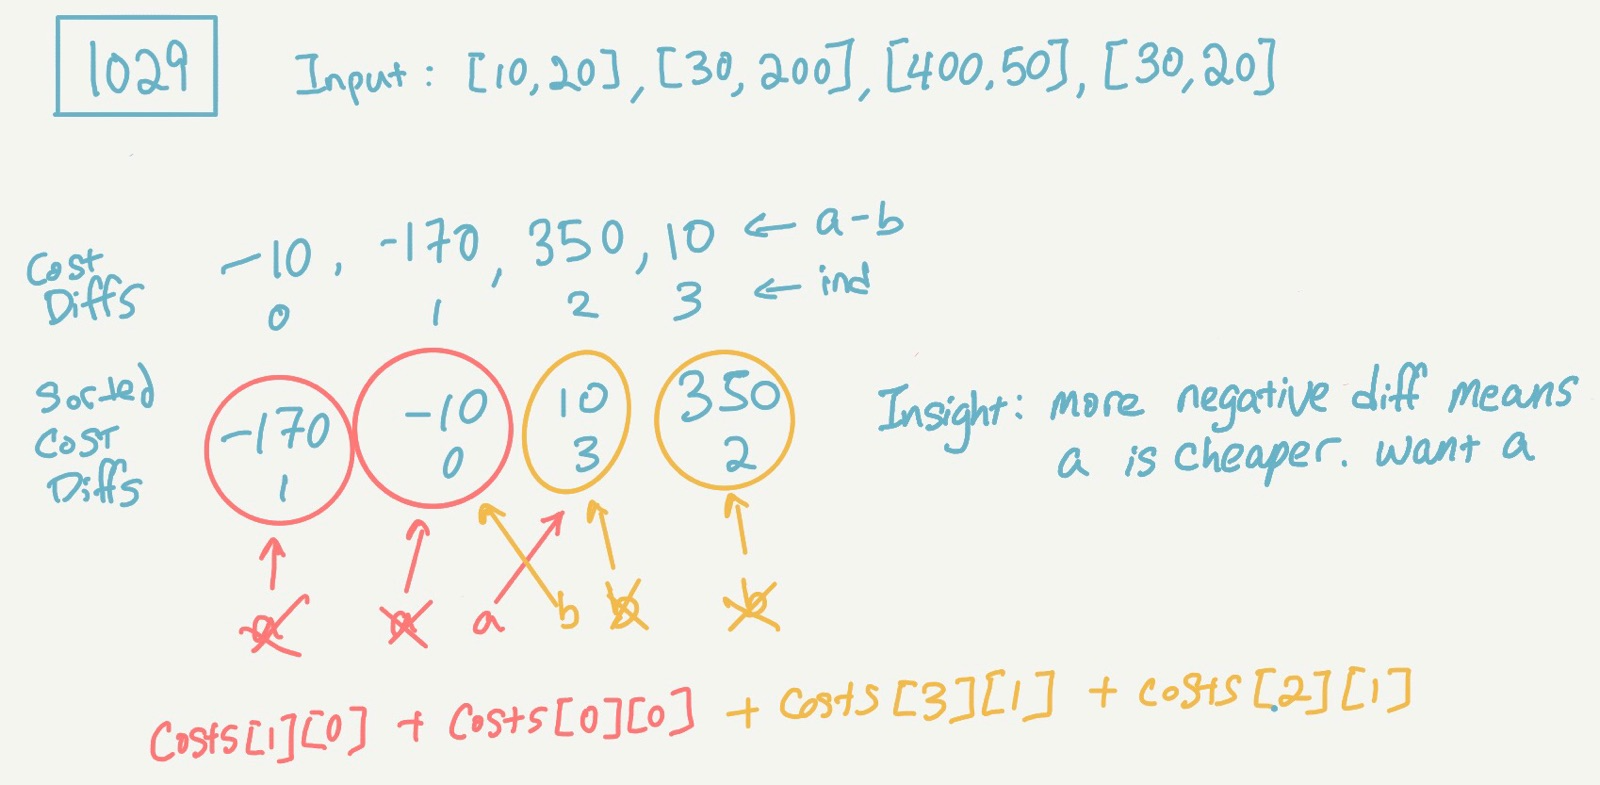 1029
Input: [10,20], [30,200], [400,50], [30,20]
Cost Diffs
-10, -170, 350, 10 ← a-b
0 1 2 3 ← ind
Sorted Cost Diffs
-170 -10 10 350
1 0 3 2
Insight: more negative diff means
a is cheaper. want a
a a a b b b
Costs[1][0] + Costs[0][0] + Costs[3][1] + Costs[2][1]